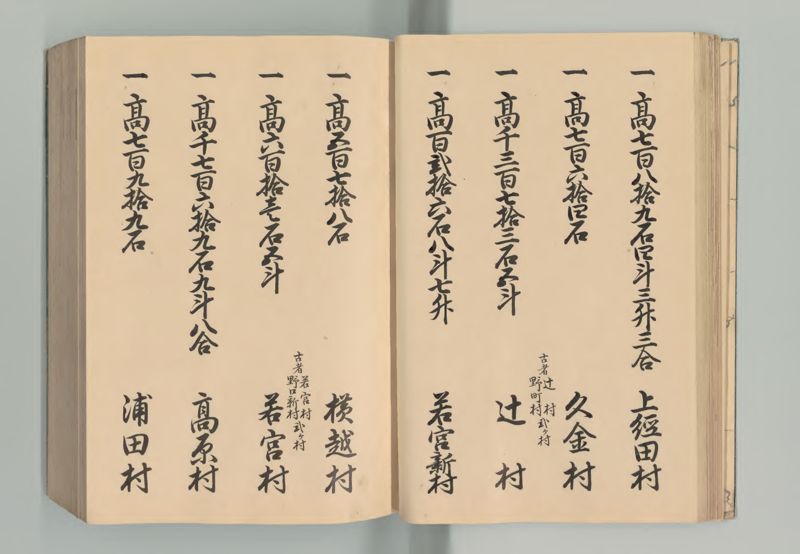 一 高七百八拾九石四斗三升三合 上經田村
一 高七百六拾四石 久金村
一 高千三百七拾三石五斗 辻村
古者辻村
野町村弐ヶ村
一 高百弐拾六石八斗七升 若宮新村
一 高五百七拾八石 横越村
一 高六百拾壱石五斗 若宮村
古者若宮村
野口新村弐ヶ村
一 高千七百六拾九石九斗八合 高原村
一 高七百九拾九石 浦田村